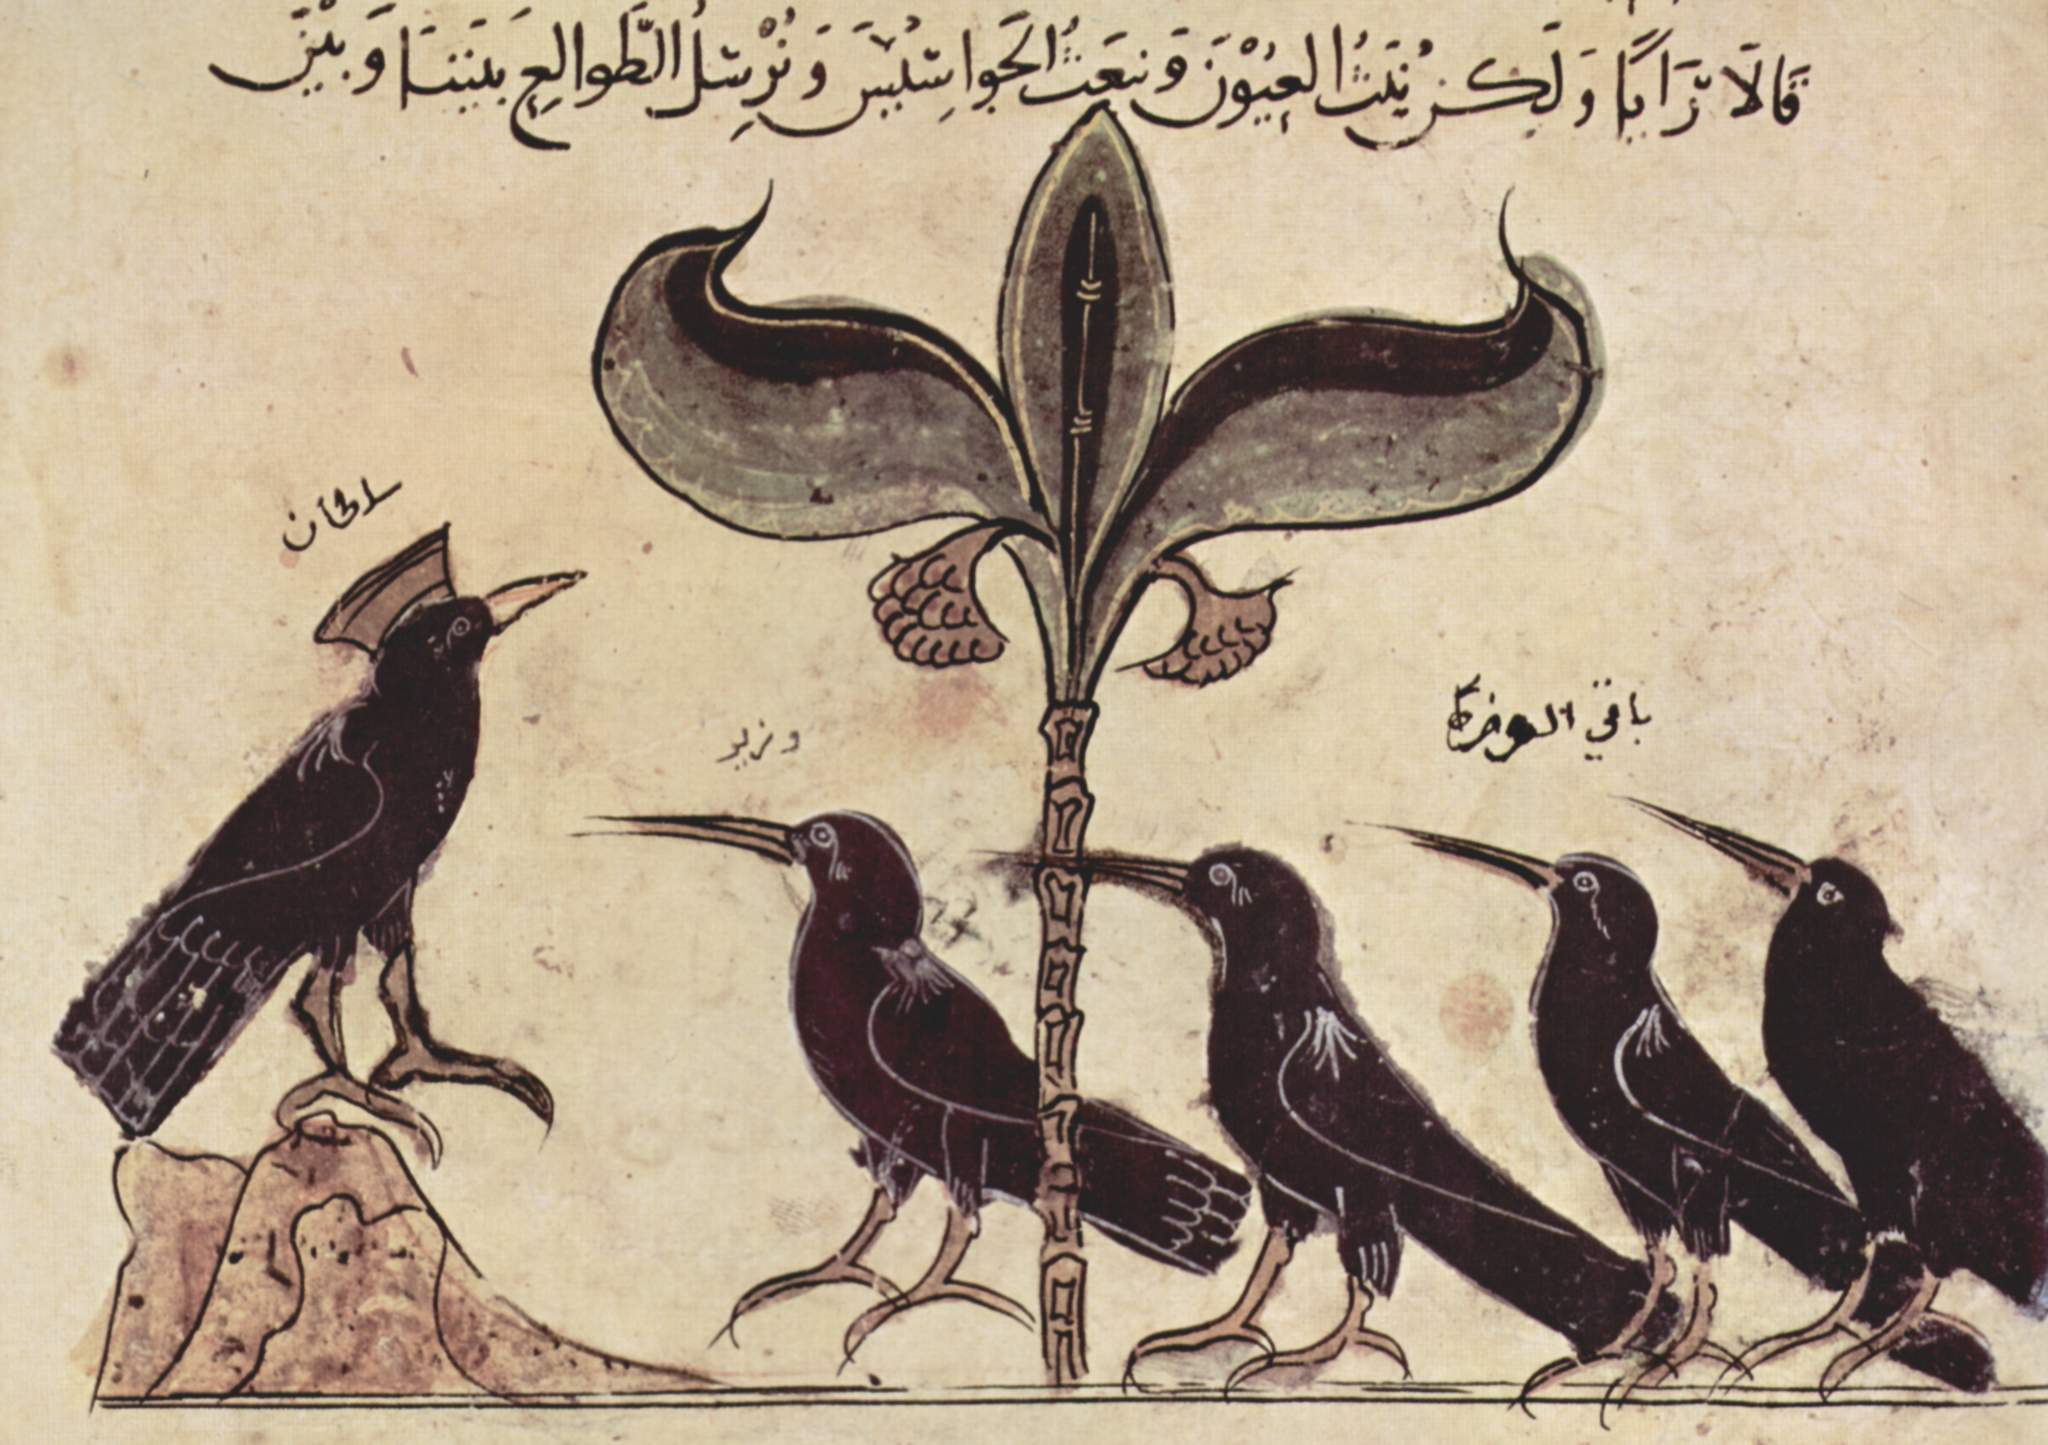 قَالَا رَأْيًا وَلَكِن نَبُثُّ العُيُوْنَ وَنبعَثُ الجَوَاسِيسَ وَنُرْسِلُ الطَّوَالِعَ بَيْنَنَا وَبَيْنَ
سلطان
وزير
باقي